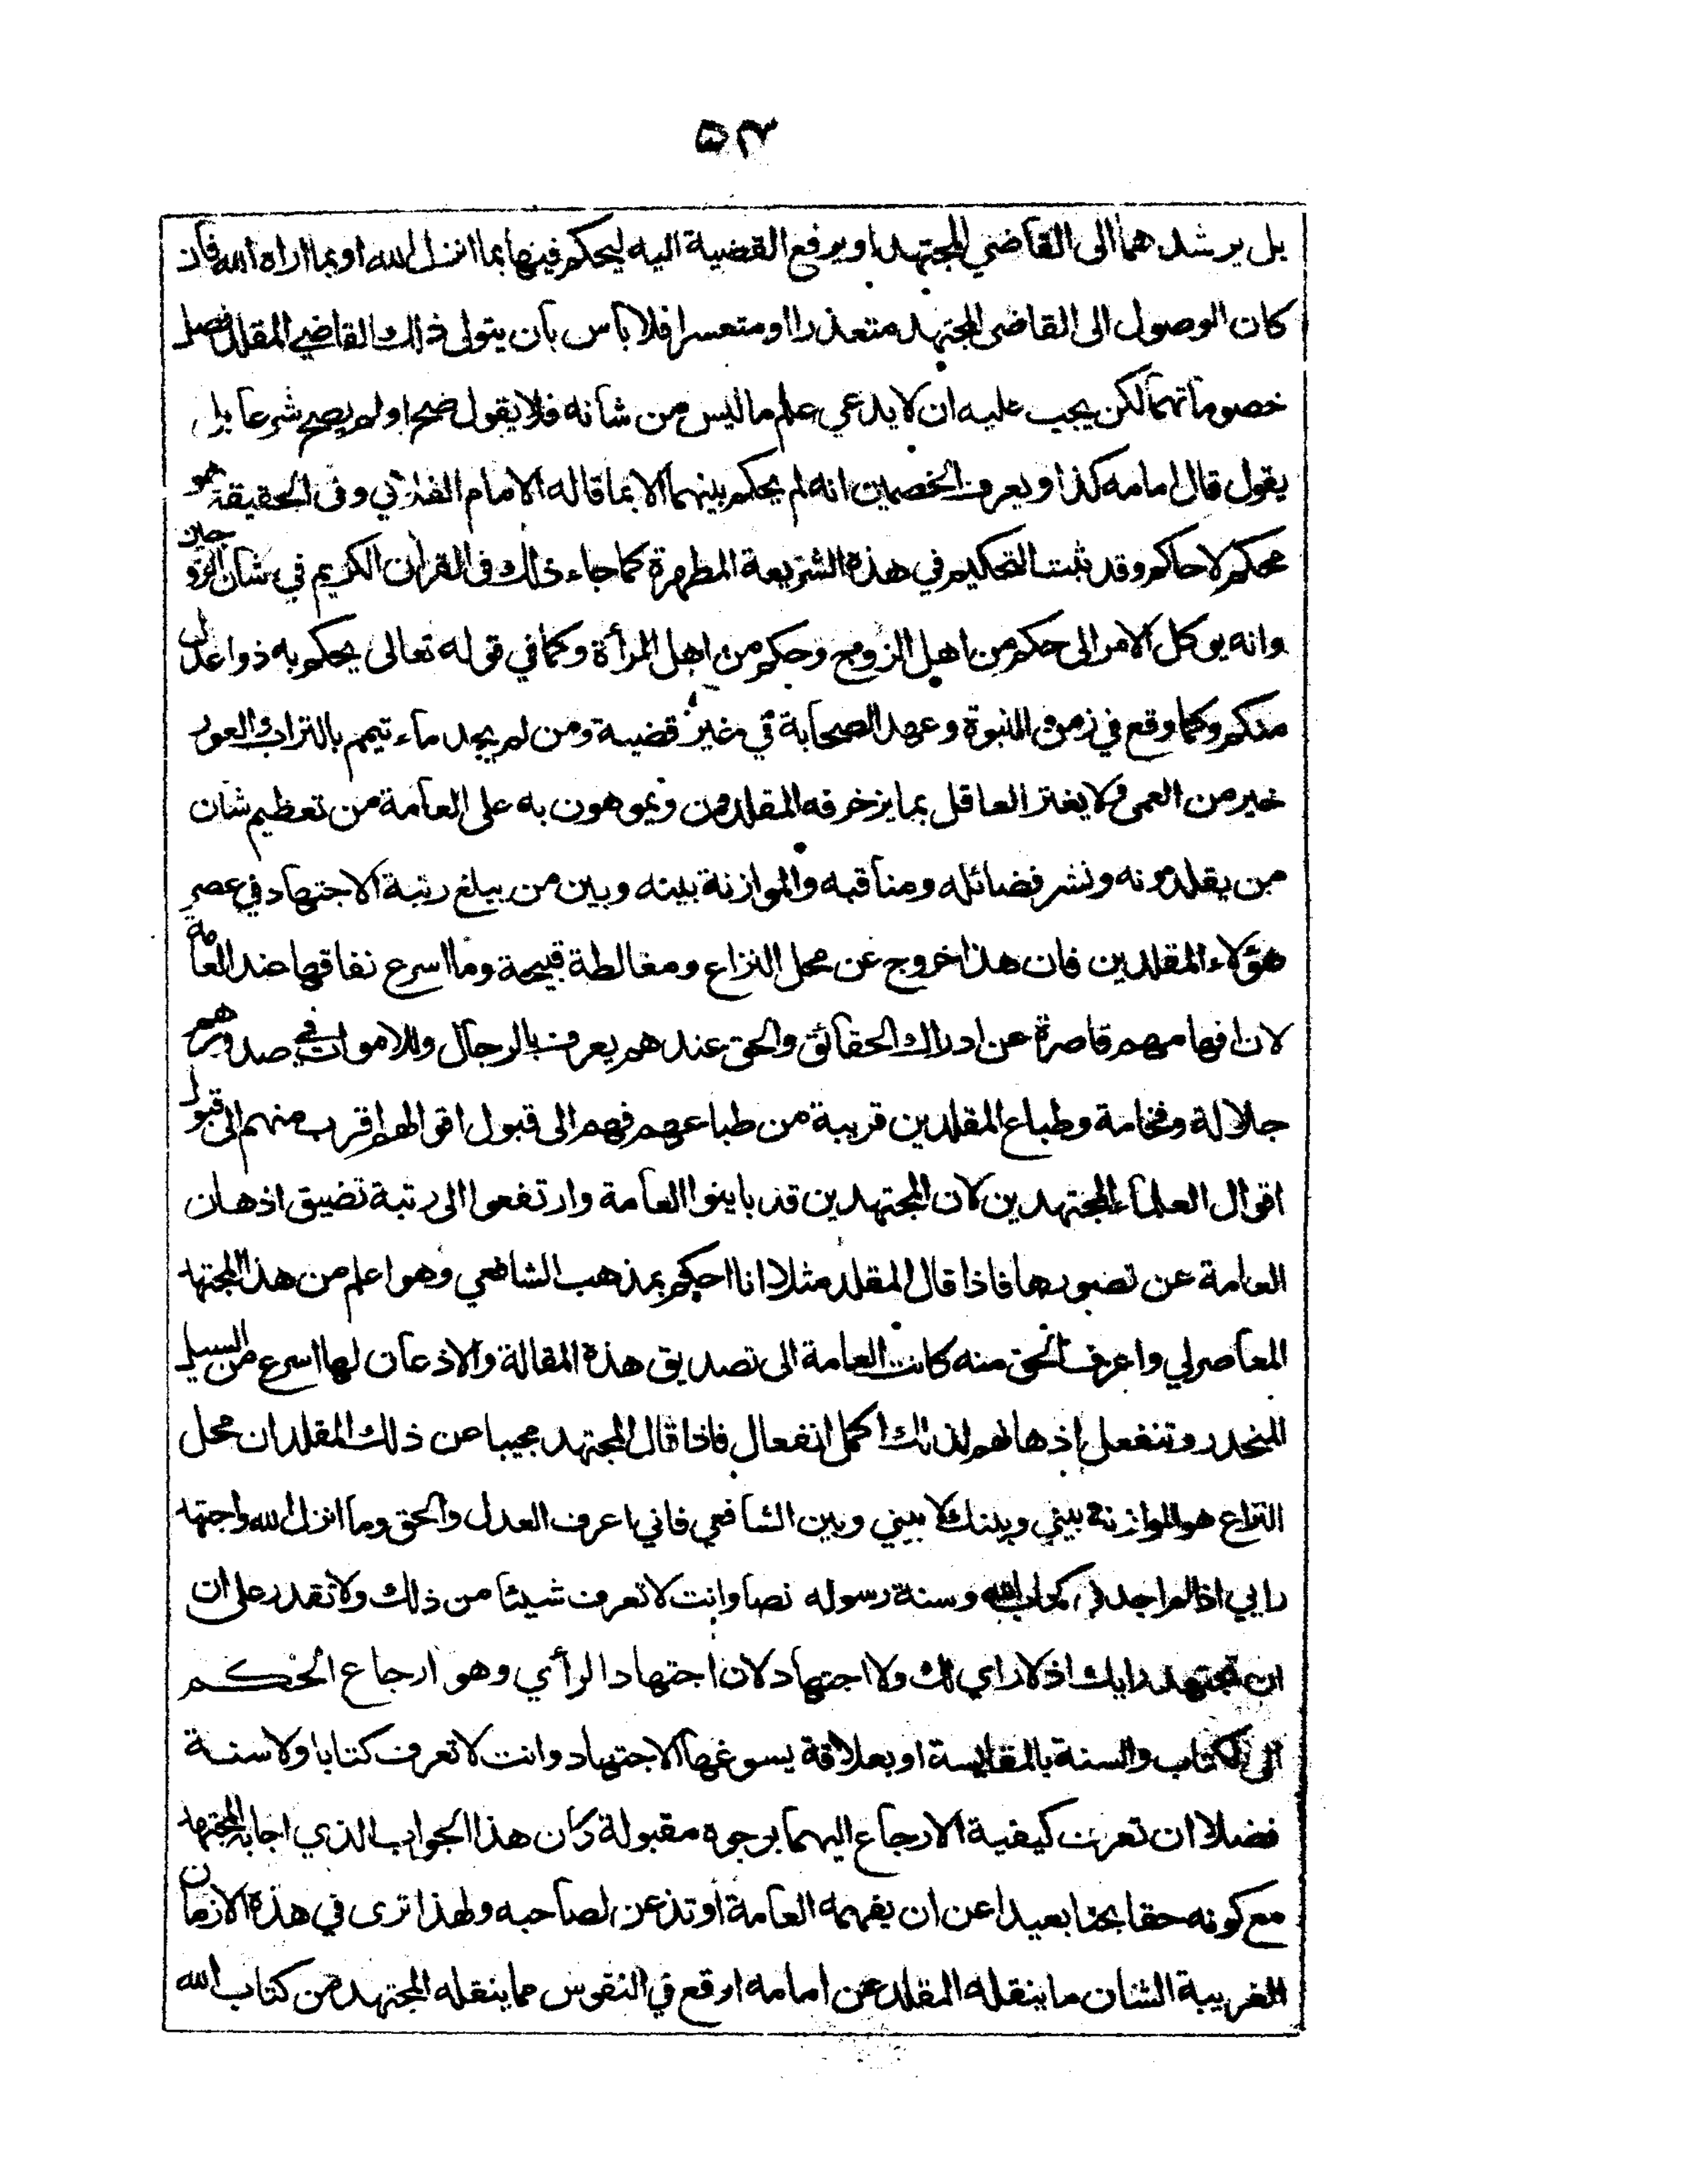 ٥٣
بل يرشدهما الى القاضي المجتهد او يرفع القضية اليه ليحكم فيها بما انزل الله او بما اراه الله فان
كان الوصول الى القاضى المجتهد متعذرا او متعسرا فلا بأس بان يتولى ذلك القاضي المقلد فصل
خصوماتهما لكن يجب عليه ان لا يدعي علم ما ليس من شانه فلا يقول صح او لم يصح شرعا بل
يقول قال امامه كذا ويعرف الخصمين انه لم يحكم بينهما الا بما قاله الامام الفلاني وفى الحقيقة هو
محكم لا حاكم وقد ثبت التحكيم في هذه الشريعة المطهرة كما جاء ذلك فى القران الكريم في شان الزوجين
وانه يوكل الامر الى حكم من اهل الزوج وحكم من اهل المرأة وكما في قوله تعالى يحكم به ذوا عدل
منكم وكما وقع في زمن النبوة وعهد الصحابة في غير قضية ومن لم يجد ماء تيمم بالتراب والعور
خير من العمى ولا يغتر العاقل بما يزخرفه المقلدون ويموهون به على العامة من تعظيم شان
من يقلدونه ونشر فضائله ومناقبه والموازنة بينه وبين من يبلغ رتبة الاجتهاد في عصر
هؤلاء المقلدين فان هذا خروج عن محل النزاع ومغالطة قبيحة وما اسرع نفاقها عند العامة
لان افهامهم قاصرة عن ادراك الحقائق والحق عندهم يعرف بالرجال وللاموات في صدورهم
جلالة وفخامة وطباع المقلدين قريبة من طباعهم فهم الى قبول اقوالهم اقرب منهم الى قبول
اقوال العلماء المجتهدين لان المجتهدين قد باينوا العامة وارتفعوا الى رتبة تضيق اذهان
العامة عن تصورها فاذا قال المقلد مثلا انا احكم بمذهب الشافعي وهو اعلم من هذا المجتهد
المعاصر لي واعرف بالحق منه كانت العامة الى تصديق هذه المقالة والاذعان لها اسرع من السيل
المنحدر وتنفعل اذهانهم لذلك اكمل انفعال فاذا قال المجتهد مجيبا عن ذلك المقلد ان محل
النزاع هو الموازنة بيني وبينك لا بيني وبين الشافعي فاني اعرف العدل والحق وما انزل الله واجتهد
رايي اذا لم اجد في كتاب الله وسنة رسوله نصا وانت لا تعرف شيئا من ذلك ولا تقدر على ان
ان تجتهد رايك اذ لا راي لك ولا اجتهاد لان اجتهاد الرأي وهو ارجاع الحكم
الى الكتاب والسنة بالمقايسة او بعلاقة يسوغها الاجتهاد وانت لا تعرف كتابا ولا سنة
فضلا ان تعرف كيفية الارجاع اليهما بوجوه مقبولة كان هذا الجواب الذي اجابه المجتهد
مع كونه حقا بحتا بعيدا عن ان يفهمه العامة او تذعن لصاحبه ولهذا ترى في هذه الازمان
الغريبة الشان ما ينقله المقلد عن امامه اوقع في النفوس مما ينقله المجتهد من كتاب الله